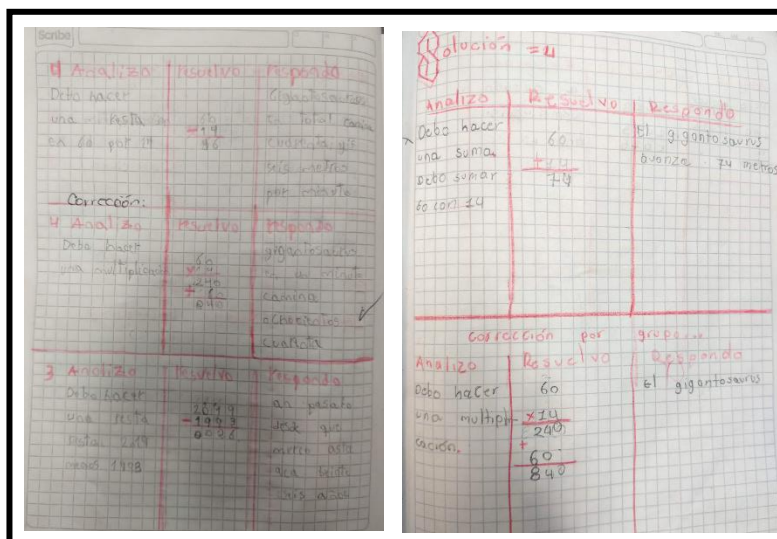 Scribe
4 Analizo
Resuelvo
Respondo
Debo hacer
una resta
en 60 por 14
60
14
Gigantosaurus
en total camina
seis metros
por minuto
Corrección:
4 Analizo
Resuelvo
Respondo
Debo hacer
una multiplicación
60
x14
240
+ 60
840
gigantosaurus
en un minuto
camina
ochocientos
cuarenta
3 Analizo
Resuelvo
Respondo
Debo hacer
una resta
resta 2019
menos 1993
2019
-1993
an pasado
desde que
asta
años
Solución =4
Analizo
Resuelvo
Respondo
x Debo hacer
una suma.
Debo sumar
60 con 14
60
+14
74
El gigantosaurus
avanza 74 metros
corrección por grupo...
Analizo
Resuelvo
Respondo
Debo hacer
una multipli-
cación.
60
x14
240
+
60
840
El gigantosaurus